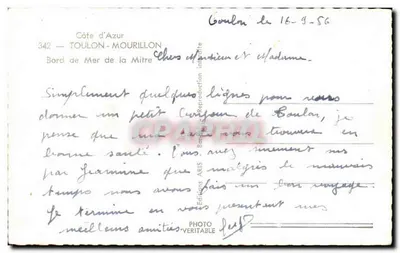 Toulon le 16-9-56
Côte d'Azur
342 — TOULON-MOURILLON
Bord de Mer de la Mitre
Chers Monsieur et Madame.
Simplement quelques lignes pour vous
donner un petit bonjour de Toulon, je
pense que ma vous trouvera en
bonne santé. Vous avez surement su
par que malgrés le mauvais
temps nous avons fais un bon voyage
Je termine en vous présentant mes
meilleurs amitiés.
PHOTO
VERITABLE